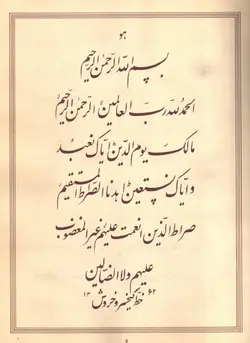 هو
بسم الله الرحمن الرحیم
الحمد لله رب العالمین الرحمن الرحیم
مالک یوم الدین ایاک نعبد
و ایاک نستعین اهدنا الصراط المستقیم
صراط الذین انعمت علیهم غیر المغضوب
علیهم ولا الضالین
خط کیخسرو خروش
۵